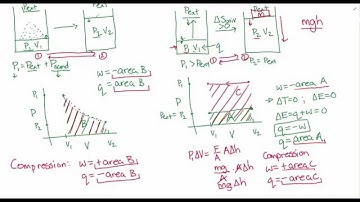 Pext
P₁ V₁
P₂ V₂
P₁ = Pext + Psand
w = -area B
q = area B
P₁
P
P₂
B
V₁ V V₂
Compression: w = +area B
q = -area B
Pext
P₁ V₁
q
ΔSuniv >0
Pext
m
P₂ V₂
mgh
① ②
P₁ > Pext
P₁ = P₂
P₁
P
Pext = P₂
C
A
V₁ V V₂
w = -area A
ΔT=0; ΔE=0
ΔE=q+w=0
q = -w
q = area A
PΔV = F/A AΔh
mg/A AΔh
mgΔh
Compression
w = +area C
q = -area C